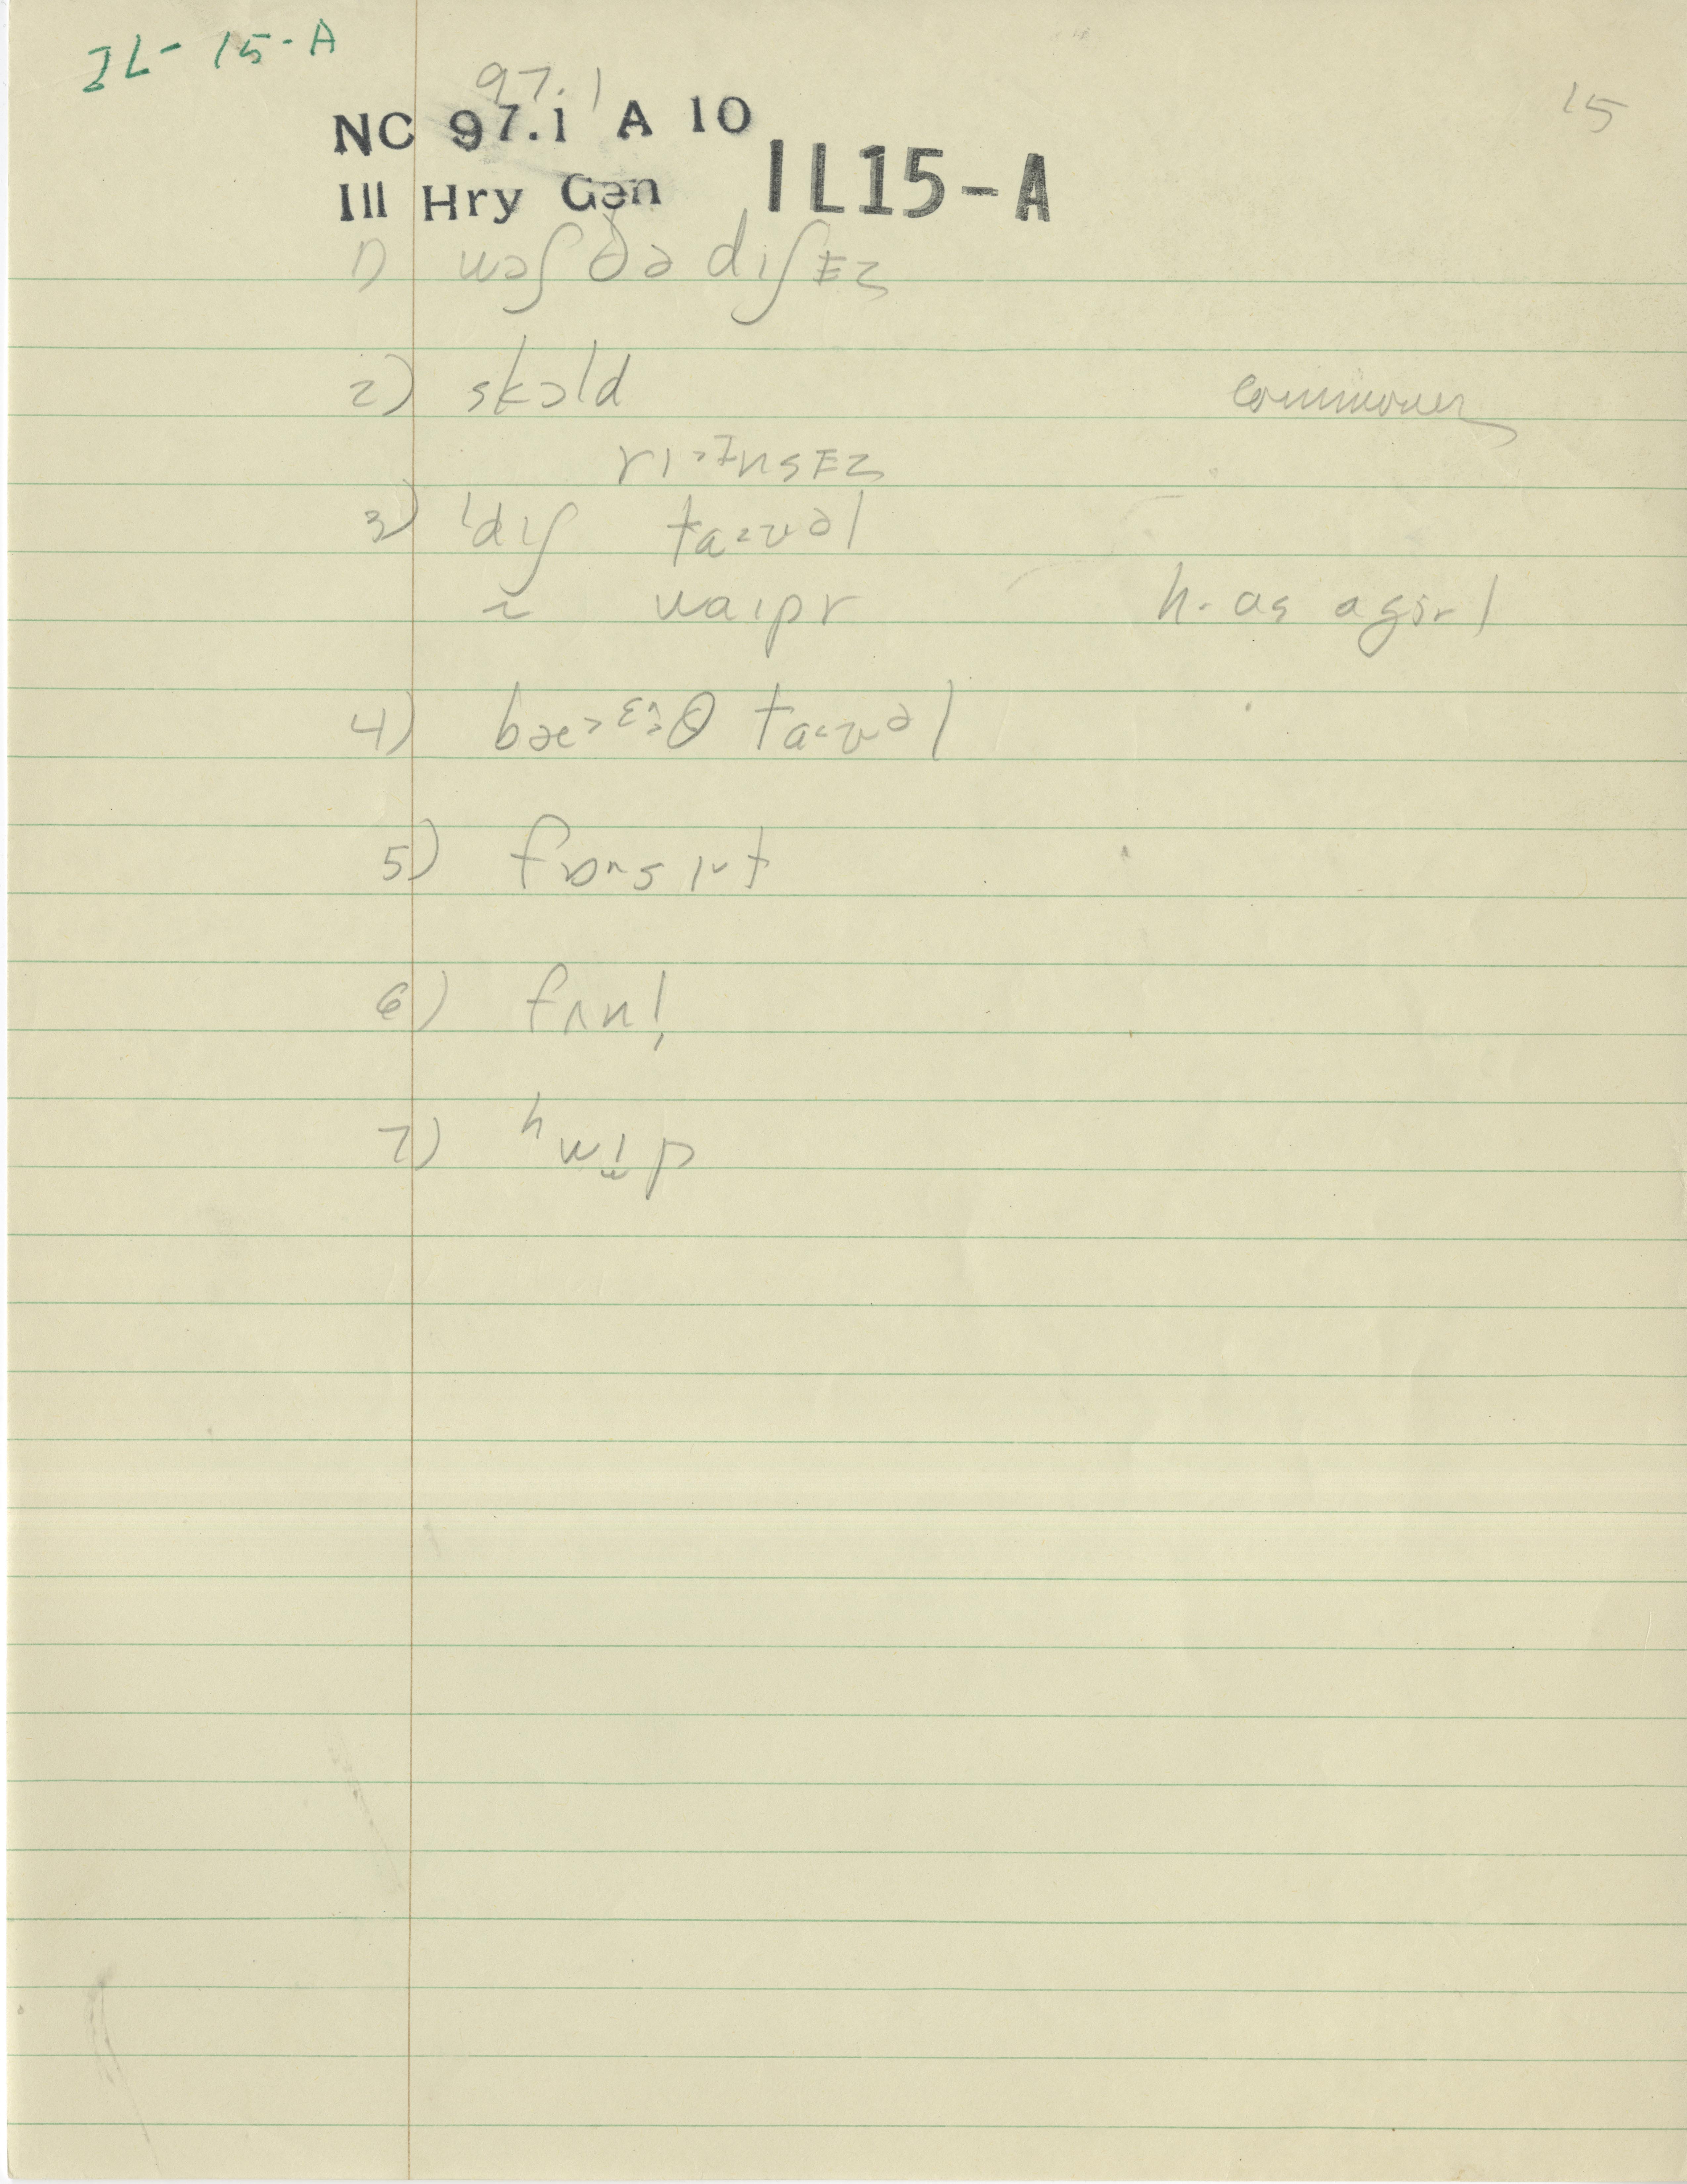 IL-15-A
97.1
15
NC 97.1 A 10
Ill Hry Gen IL15-A
1) wɔʃ ðə dɪʃɪz
2) skɔld
commoner
rɪ>ɪnsɪz
3) 'dɪʃ ta<wəl
~ waɪpr h. as a girl
4) bæ>ɛ̯θ ta<wəl
5) fɒ^sɪ˅t
6) fʌnl̩
7) ʰwɪp